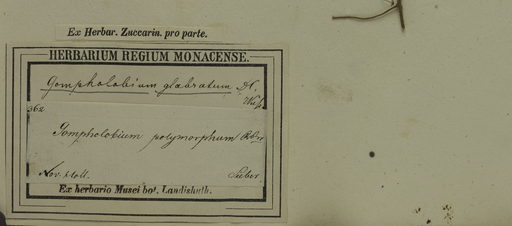 Ex Herbar. Zuccarin. pro parte.
HERBARIUM REGIUM MONACENSE.
Gompholobium glabratum DC.
362
Gompholobium polymorphum RBr
Nov. Holl. Sieber.
Ex herbario Musei bot. Landishuth.